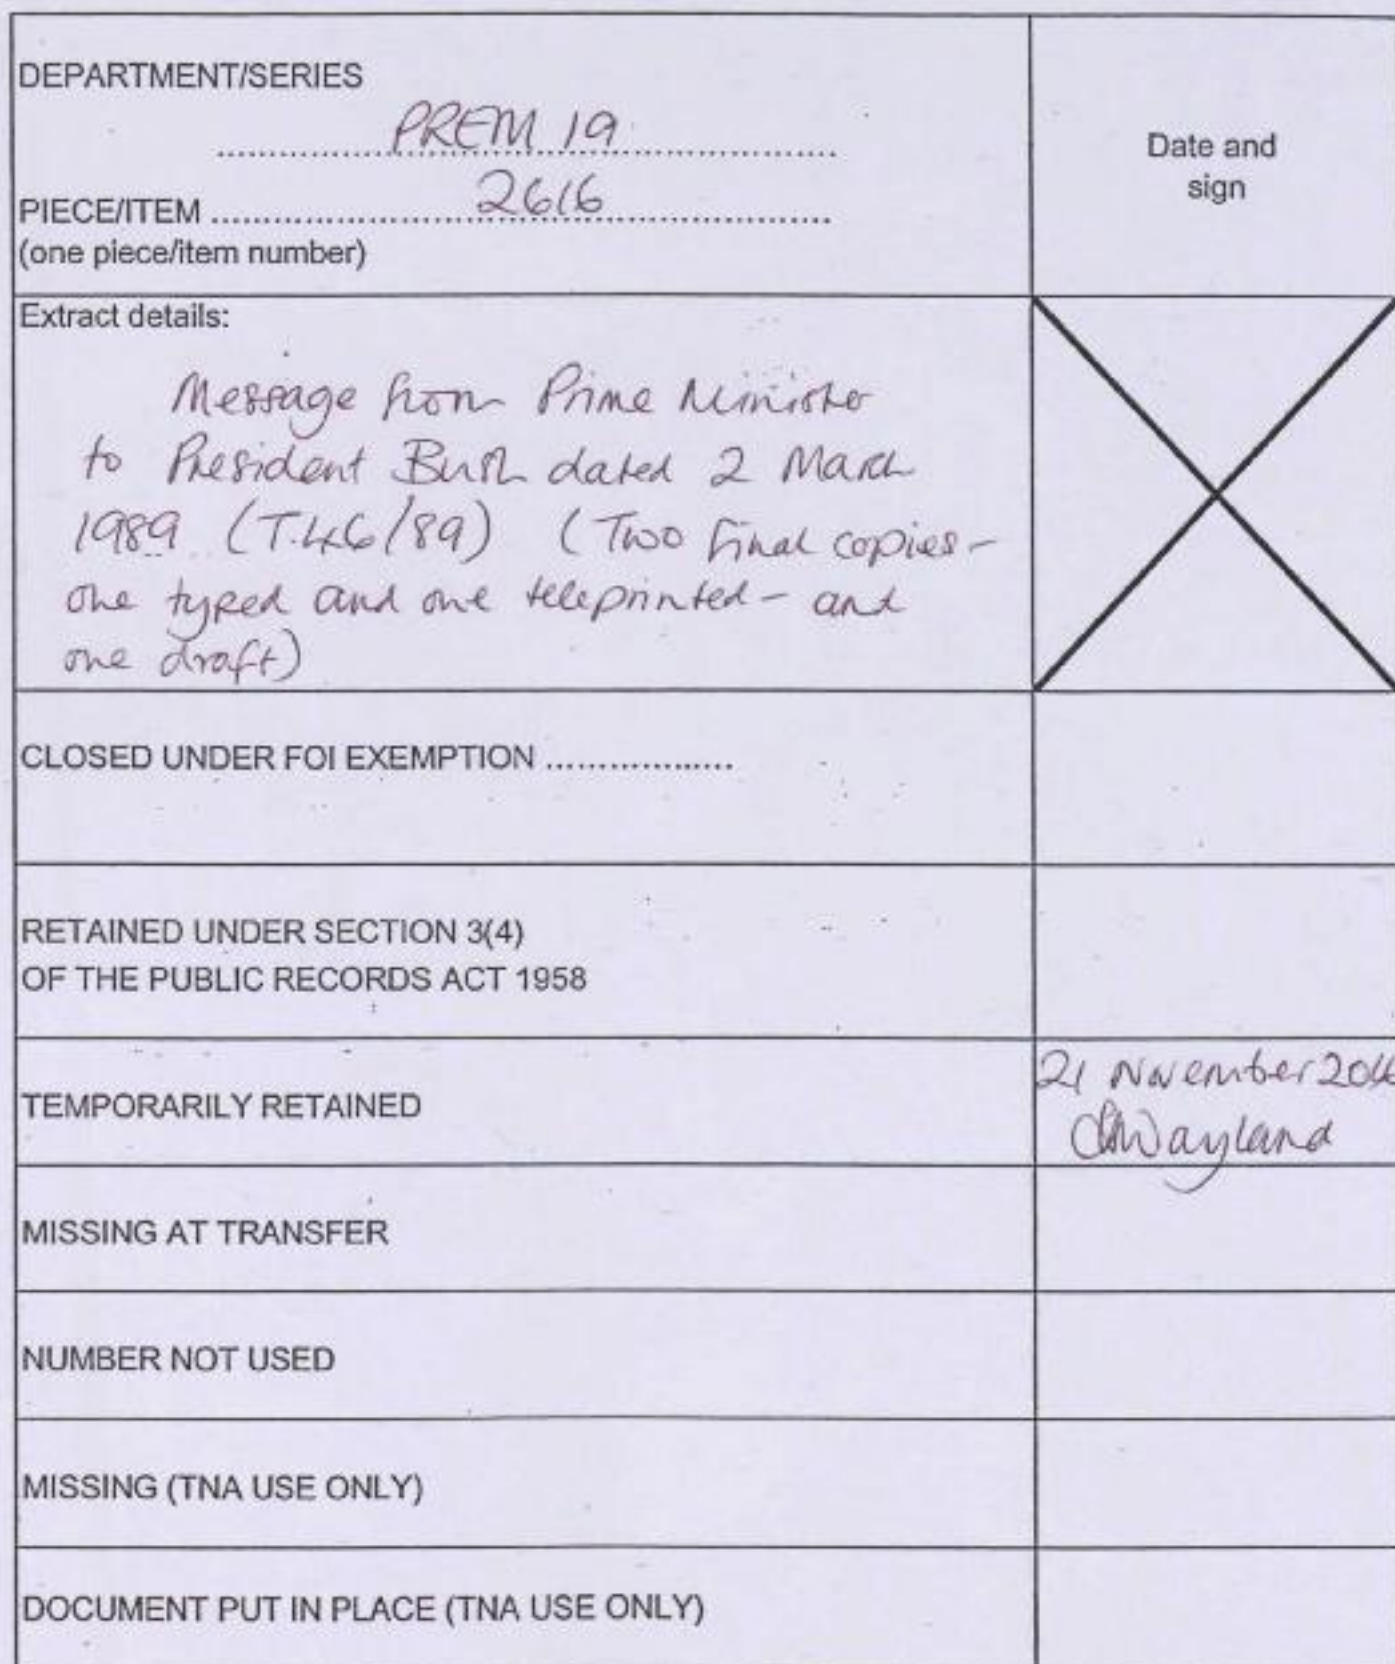 DEPARTMENT/SERIES
PREM 19
Date and
sign
PIECE/ITEM 2616
(one piece/item number)
Extract details:
Message from Prime Minister
to President Bush dated 2 March
1989 (T.46/89) (Two final copies-
one typed and one teleprinted - and
one draft)
CLOSED UNDER FOI EXEMPTION ..................
RETAINED UNDER SECTION 3(4)
OF THE PUBLIC RECORDS ACT 1958
TEMPORARILY RETAINED
21 November 2016
Wayland
MISSING AT TRANSFER
NUMBER NOT USED
MISSING (TNA USE ONLY)
DOCUMENT PUT IN PLACE (TNA USE ONLY)